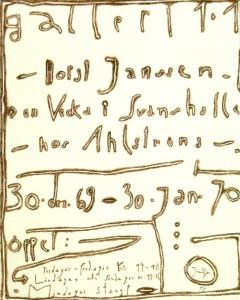 galleri 1.1
- Horst Janssen -
en Vecka i Svaneholm
- hos Ahlströms -
30. dec. 69 - 30. Jan. 70
öppet:
Tisdagar - fredagar Kl. 14-18
Lördagar och Söndagar
Måndagar stängt